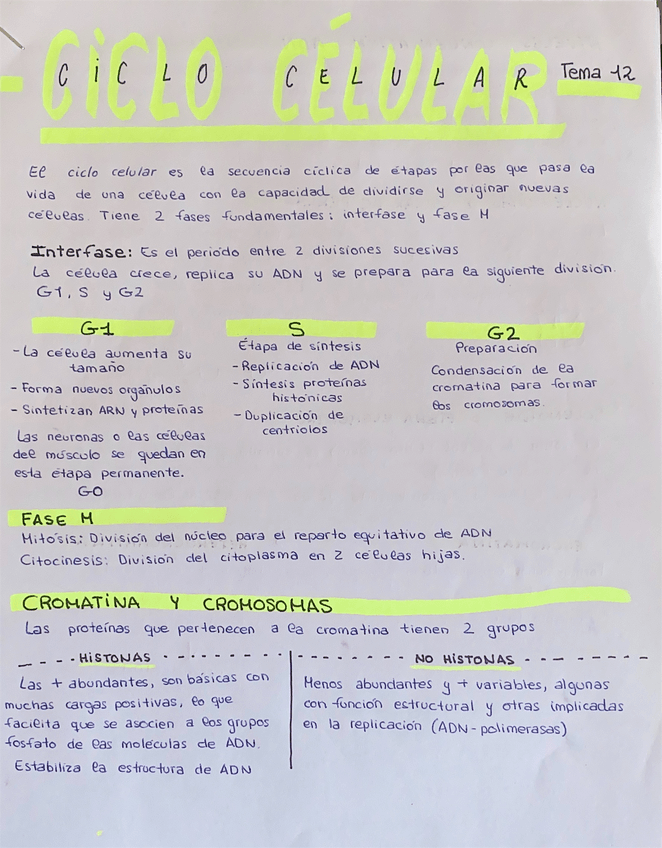 CICLO CELULAR Tema 12
El ciclo celular es la secuencia cíclica de etapas por las que pasa la
vida de una célula con la capacidad de dividirse y originar nuevas
células. Tiene 2 fases fundamentales: interfase y fase M
Interfase: Es el periódo entre 2 divisiones sucesivas
La célula crece, replica su ADN y se prepara para la siguiente división.
G1, S y G2
G1
- La célula aumenta su
tamaño
- Forma nuevos orgánulos
- Sintetizan ARN y proteínas
Las neuronas o las células
del músculo se quedan en
esta étapa permanente.
G0
S
Étapa de síntesis
- Replicación de ADN
- Síntesis proteínas
histónicas
- Duplicación de
centriolos
G2
Preparación
Condensación de la
cromatina para formar
los cromosomas.
FASE M
Mitósis: División del núcleo para el reparto equitativo de ADN
Citocinesis: División del citoplasma en 2 células hijas.
CROMATINA Y CROMOSOMAS
Las proteínas que pertenecen a la cromatina tienen 2 grupos
HISTONAS
Las + abundantes, son básicas con
muchas cargas positivas, lo que
facilita que se asocien a los grupos
fosfato de las moléculas de ADN.
Estabiliza la estructura de ADN
NO HISTONAS
Menos abundantes y + variables, algunas
con función estructural y otras implicadas
en la replicación (ADN-polimerasas)